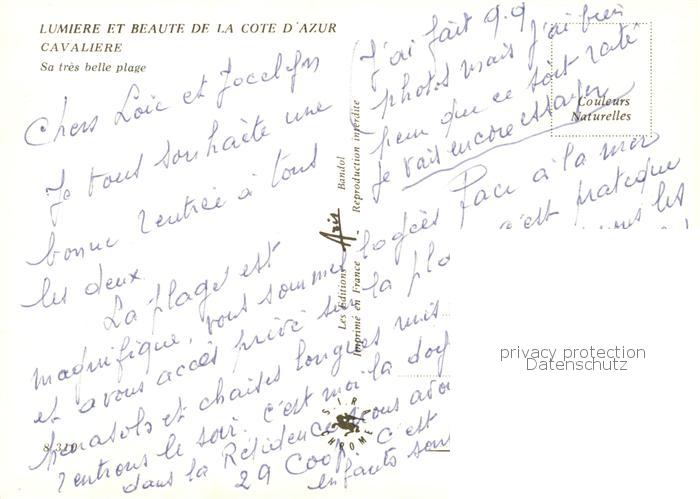 LUMIERE ET BEAUTE DE LA COTE D'AZUR
CAVALIERE
Sa très belle plage
Chers Loïc et Jocelyn
Je vous souhaite une
bonne rentrée à tous
les deux.
La plage est
magnifique, nous sommes logées face à la mer
et avons accès privé sur la pla c'est pratique
parasols et chaises longues mis nous les
rentrons le soir. c'est moi la
dans la Résidence nous avo
29 C'est
enfants son
J'ai fait 9.9
photos mais j'ai bien
peur que ce soit raté
je vais encore essayer
Couleurs
Naturelles
Les Editions Aris Bandol
Imprimé en France - Reproduction interdite
SIR
CHROME
privacy protection
Datenschutz